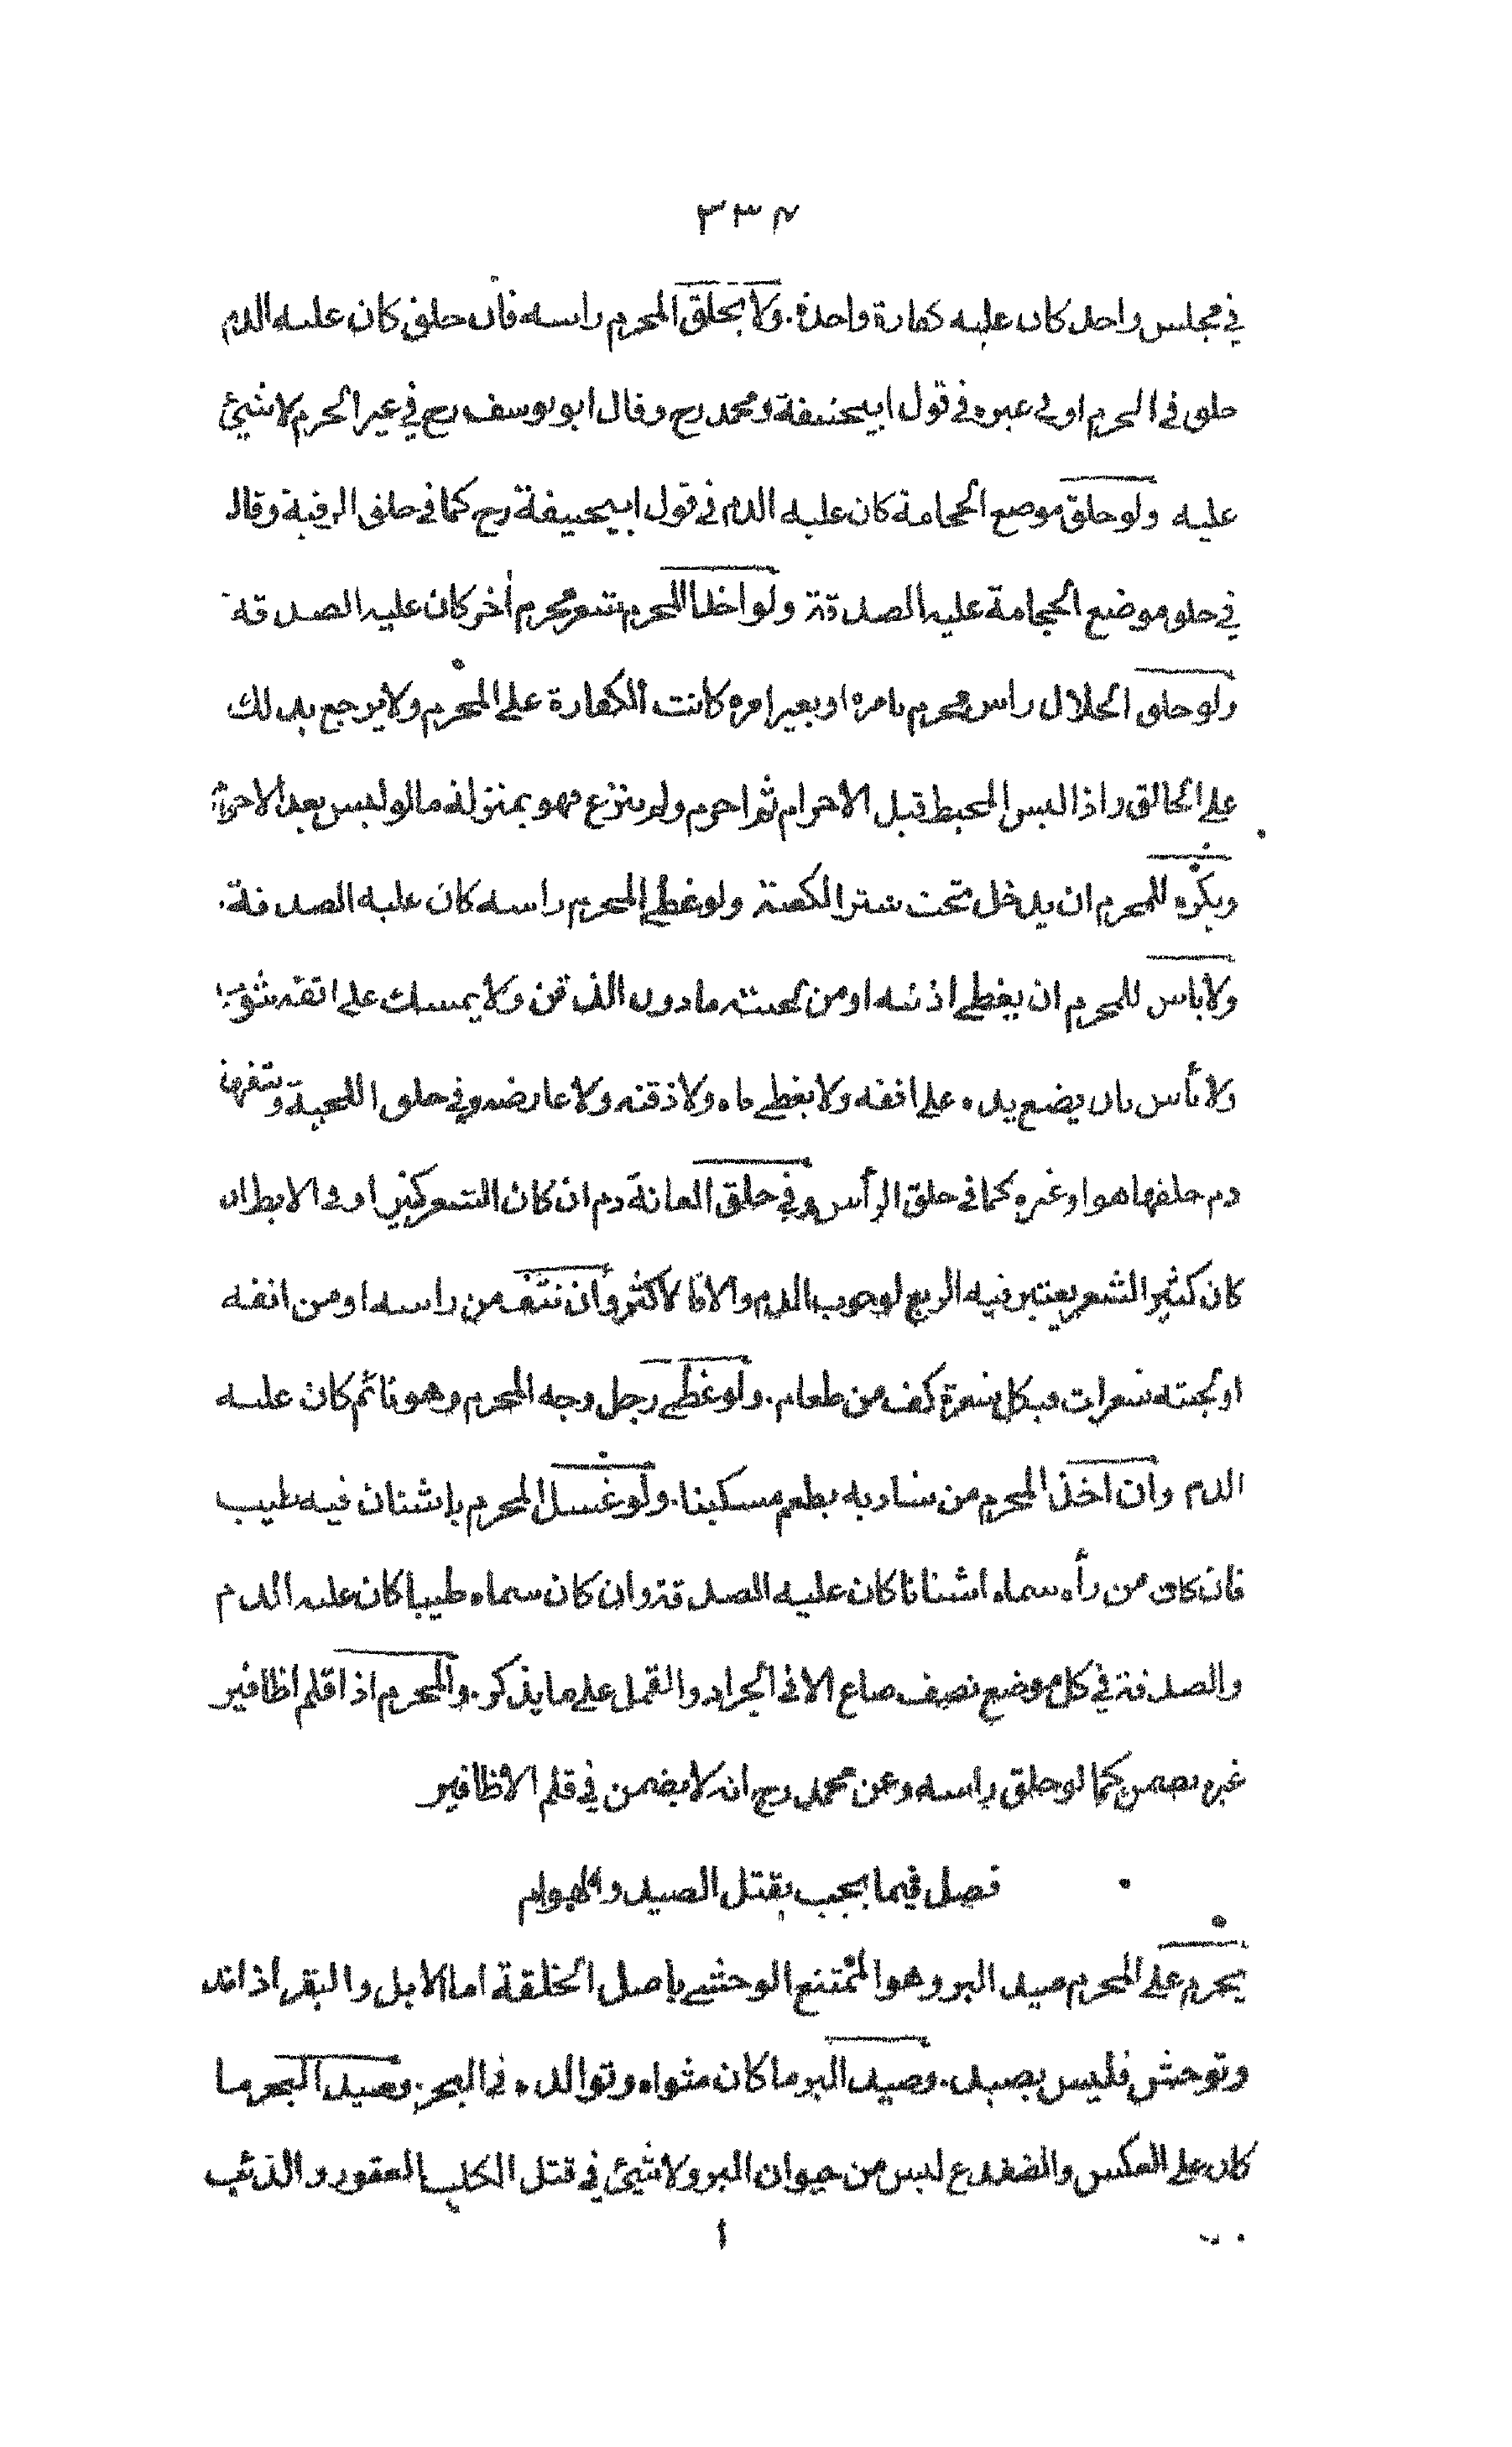 ٣٣٧
في مجلس واحد كان عليه كفارة واحدة. ولا يحلق المحرم راسه فان حلق كان عليه الدم
حلق في الحرم او في غيره في قول ابيحنيفة ومحمد رح وقال ابو يوسف رح في غير الحرم لا شيئ
عليه ولو حلق موضع الحجامة كان عليه الدم في قول ابيحنيفة رح كما في حلق الرقبة وقالا
في حلق موضع الحجامة عليه الصدقة ولو اخذ المحرم شعر محرم أخر كان عليه الصدقة
ولو حلق الحلال راس محرم بامره او بغير امره كانت الكفارة على المحرم ولا يرجع بذلك
على الحالق واذا لبس المخيط قبل الاحرام ثم احرم ولم ينزع فهو بمنزلة ما لو لبس بعد الاحرام
ويكره للمحرم ان يدخل تحت ستر الكعبة ولو غطى المحرم راسه كان عليه الصدقة.
ولا باس للمحرم ان يغطي اذنيه او من لحيته ما دون الذقن ولا يمسك على انفه بثوب
ولا بأس بان يضع يده على انفه ولا يغطي فاه ولا ذقنه ولا عارضه وفي حلق اللحية ونتفها
دم حلقها هو او غيره كما في حلق الرأس وفي حلق العانة دم ان كان الشعر كثيرا وفي الابط ان
كان كثير الشعر يعتبر فيه الربع لوجوب الدم والا فالاكثر وان نتف من راسه او من انفه
او لحيته شعرات فبكل شعرة كف من طعام. ولو غطى رجل وجه المحرم وهو نائم كان عليه
الدم وان اخذ المحرم من شاربه يطعم مسكينا. ولو غسل المحرم باشنان فيه طيب
فان كان من رأه سماه اشنانا كان عليه الصدقة وان كان سماه طيبا كان عليه الدم
والصدقة في كل موضع نصف صاع الا في الجراد والقمل على ما يذكر. والمحرم اذا قلم اظافير
غيره يضمن كما لو حلق راسه وعن محمد رح انه لا يضمن في قلم الاظافير
فصل فيما يجب بقتل الصيد والهوام
يحرم على المحرم صيد البر وهو الممتنع الوحشي باصل الخلقة اما الابل والبقر اذا ند
وتوحش فليس بصيد. وصيد البر ما كان مثواه وتوالده في البحر. وصيد البحر ما
كان على العكس والضفدع ليس من حيوان البر ولا شيئ في قتل الكلب العقور والذئب